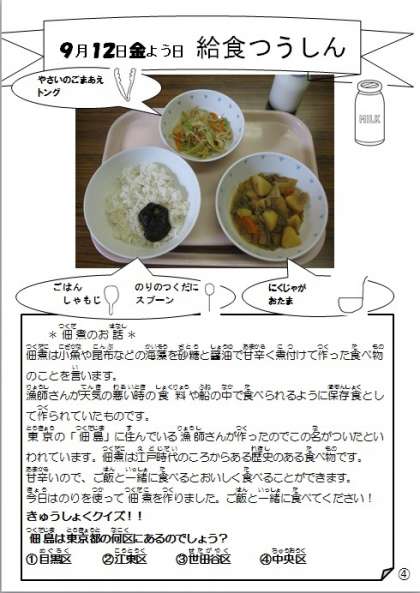 9月12日金よう日 給食つうしん
やさいのごまあえ
トング
MILK
ごはん
しゃもじ
のりのつくだに
スプーン
にくじゃが
おたま
＊佃煮のお話＊
佃煮は小魚や昆布などの海藻を砂糖と醤油で甘辛く煮付けて作った食べ物
のことを言います。
漁師さんが天気の悪い時の食料や船の中で食べられるように保存食とし
て作られていたものです。
東京の「佃島」に住んでいる漁師さんが作ったのでこの名がついたとい
われています。佃煮は江戸時代のころからある歴史のある食べ物です。
甘辛いので、ご飯と一緒に食べるとおいしく食べることができます。
今日はのりを使って佃煮を作りました。ご飯と一緒に食べてください！
きゅうしょくクイズ！！
佃島は東京都の何区にあるのでしょう？
①目黒区 ②江東区 ③世田谷区 ④中央区
④